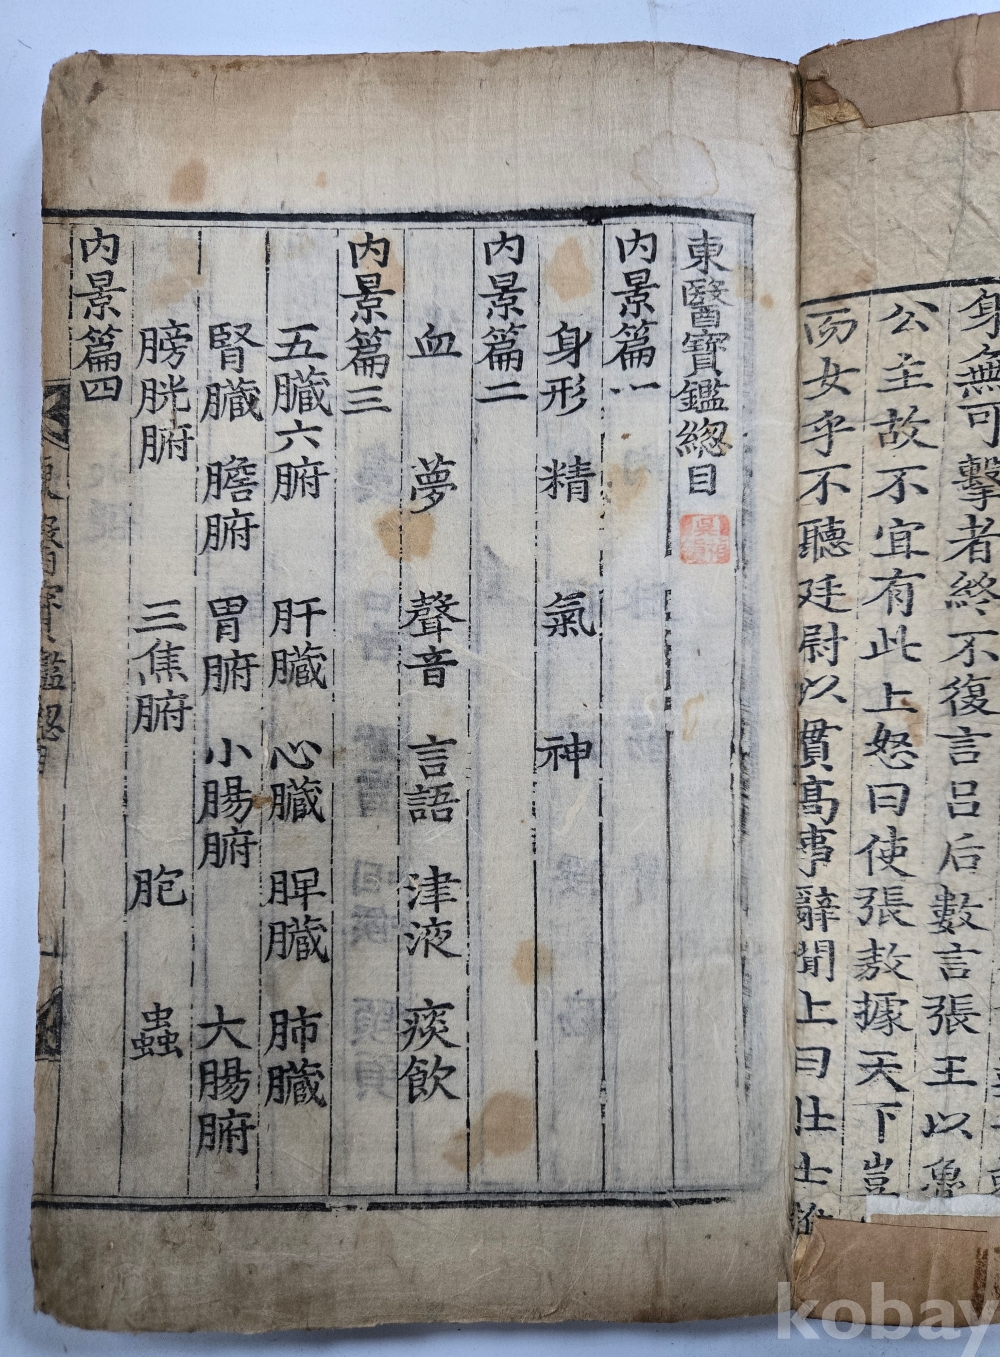 身無可擊者終不復言呂后數言張王以魯
公主故不宜有此上怒曰使張敖據天下豈
而女乎不聽廷尉以貫高事辭聞上曰壯士
東醫寶鑑緫目
內景篇一
身形 精 氣 神
內景篇二
血 夢 聲音 言語 津液 痰飮
內景篇三
五臟六腑 肝臟 心臟 脾臟 肺臟
腎臟 膽腑 胃腑 小腸腑 大腸腑
膀胱腑 三焦腑 胞 蟲
內景篇四
kobay